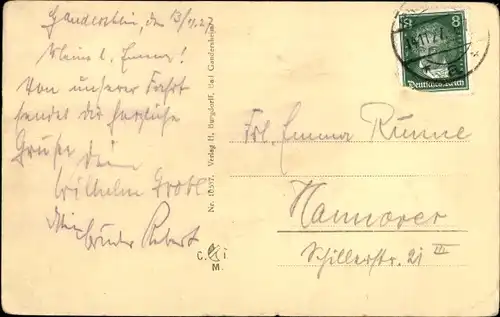 Gandersheim, den 13/11.27
Meine l. Emma!
Von unserer Fahrt
sendet dir herzliche
Grüße dein
Wilhelm
Bruder Robert
Nr. 16557. Verlag H. Burgdorff, Bad Gandersheim
C. i
M.
8 8
14.11.27
Deutsches Reich
Frl. Emma Runne
Hannover
Schillerstr. 21 III